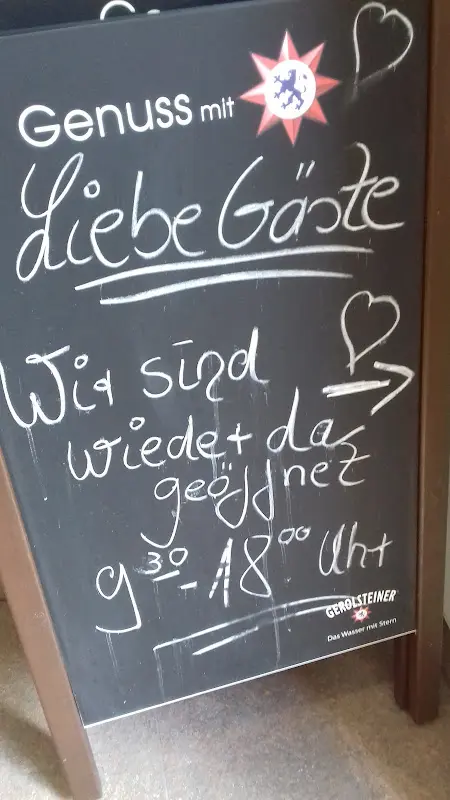 Genuss mit
Liebe Gäste
Wir sind
wieder da
geöffnet
9³⁰-18⁰⁰ Uhr
GEROLSTEINER
Das Wasser mit Stern